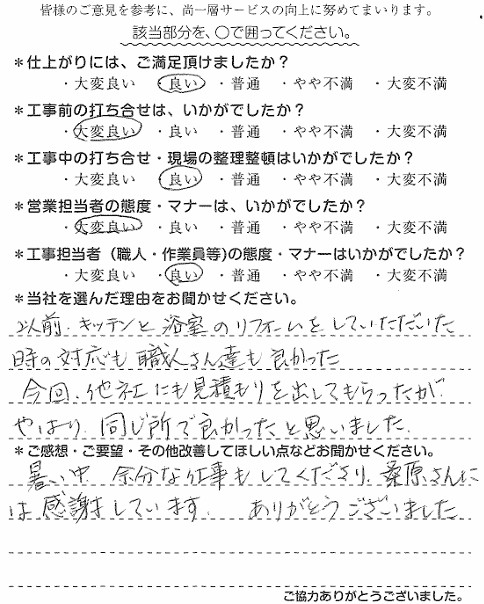 皆様のご意見を参考に、尚一層サービスの向上に努めてまいります。
該当部分を、○で囲ってください。
＊仕上がりには、ご満足頂けましたか？
・大変良い ・良い ・普通 ・やや不満 ・大変不満
＊工事前の打ち合せは、いかがでしたか？
・大変良い ・良い ・普通 ・やや不満 ・大変不満
＊工事中の打ち合せ・現場の整理整頓はいかがでしたか？
・大変良い ・良い ・普通 ・やや不満 ・大変不満
＊営業担当者の態度・マナーは、いかがでしたか？
・大変良い ・良い ・普通 ・やや不満 ・大変不満
＊工事担当者（職人・作業員等)の態度・マナーはいかがでしたか？
・大変良い ・良い ・普通 ・やや不満 ・大変不満
＊当社を選んだ理由をお聞かせください。
以前、キッチンと浴室のリフォームをしていただいた
時の対応も職人さん達も良かった
今回、他社にも見積もりを出してもらったが
やはり、同じ所で良かったと思いました。
＊ご感想・ご要望・その他改善してほしい点などお聞かせください。
暑い中、余分な仕事もしてくださり、桑原さんに
は感謝しています。 ありがとうございました
ご協力ありがとうございました。